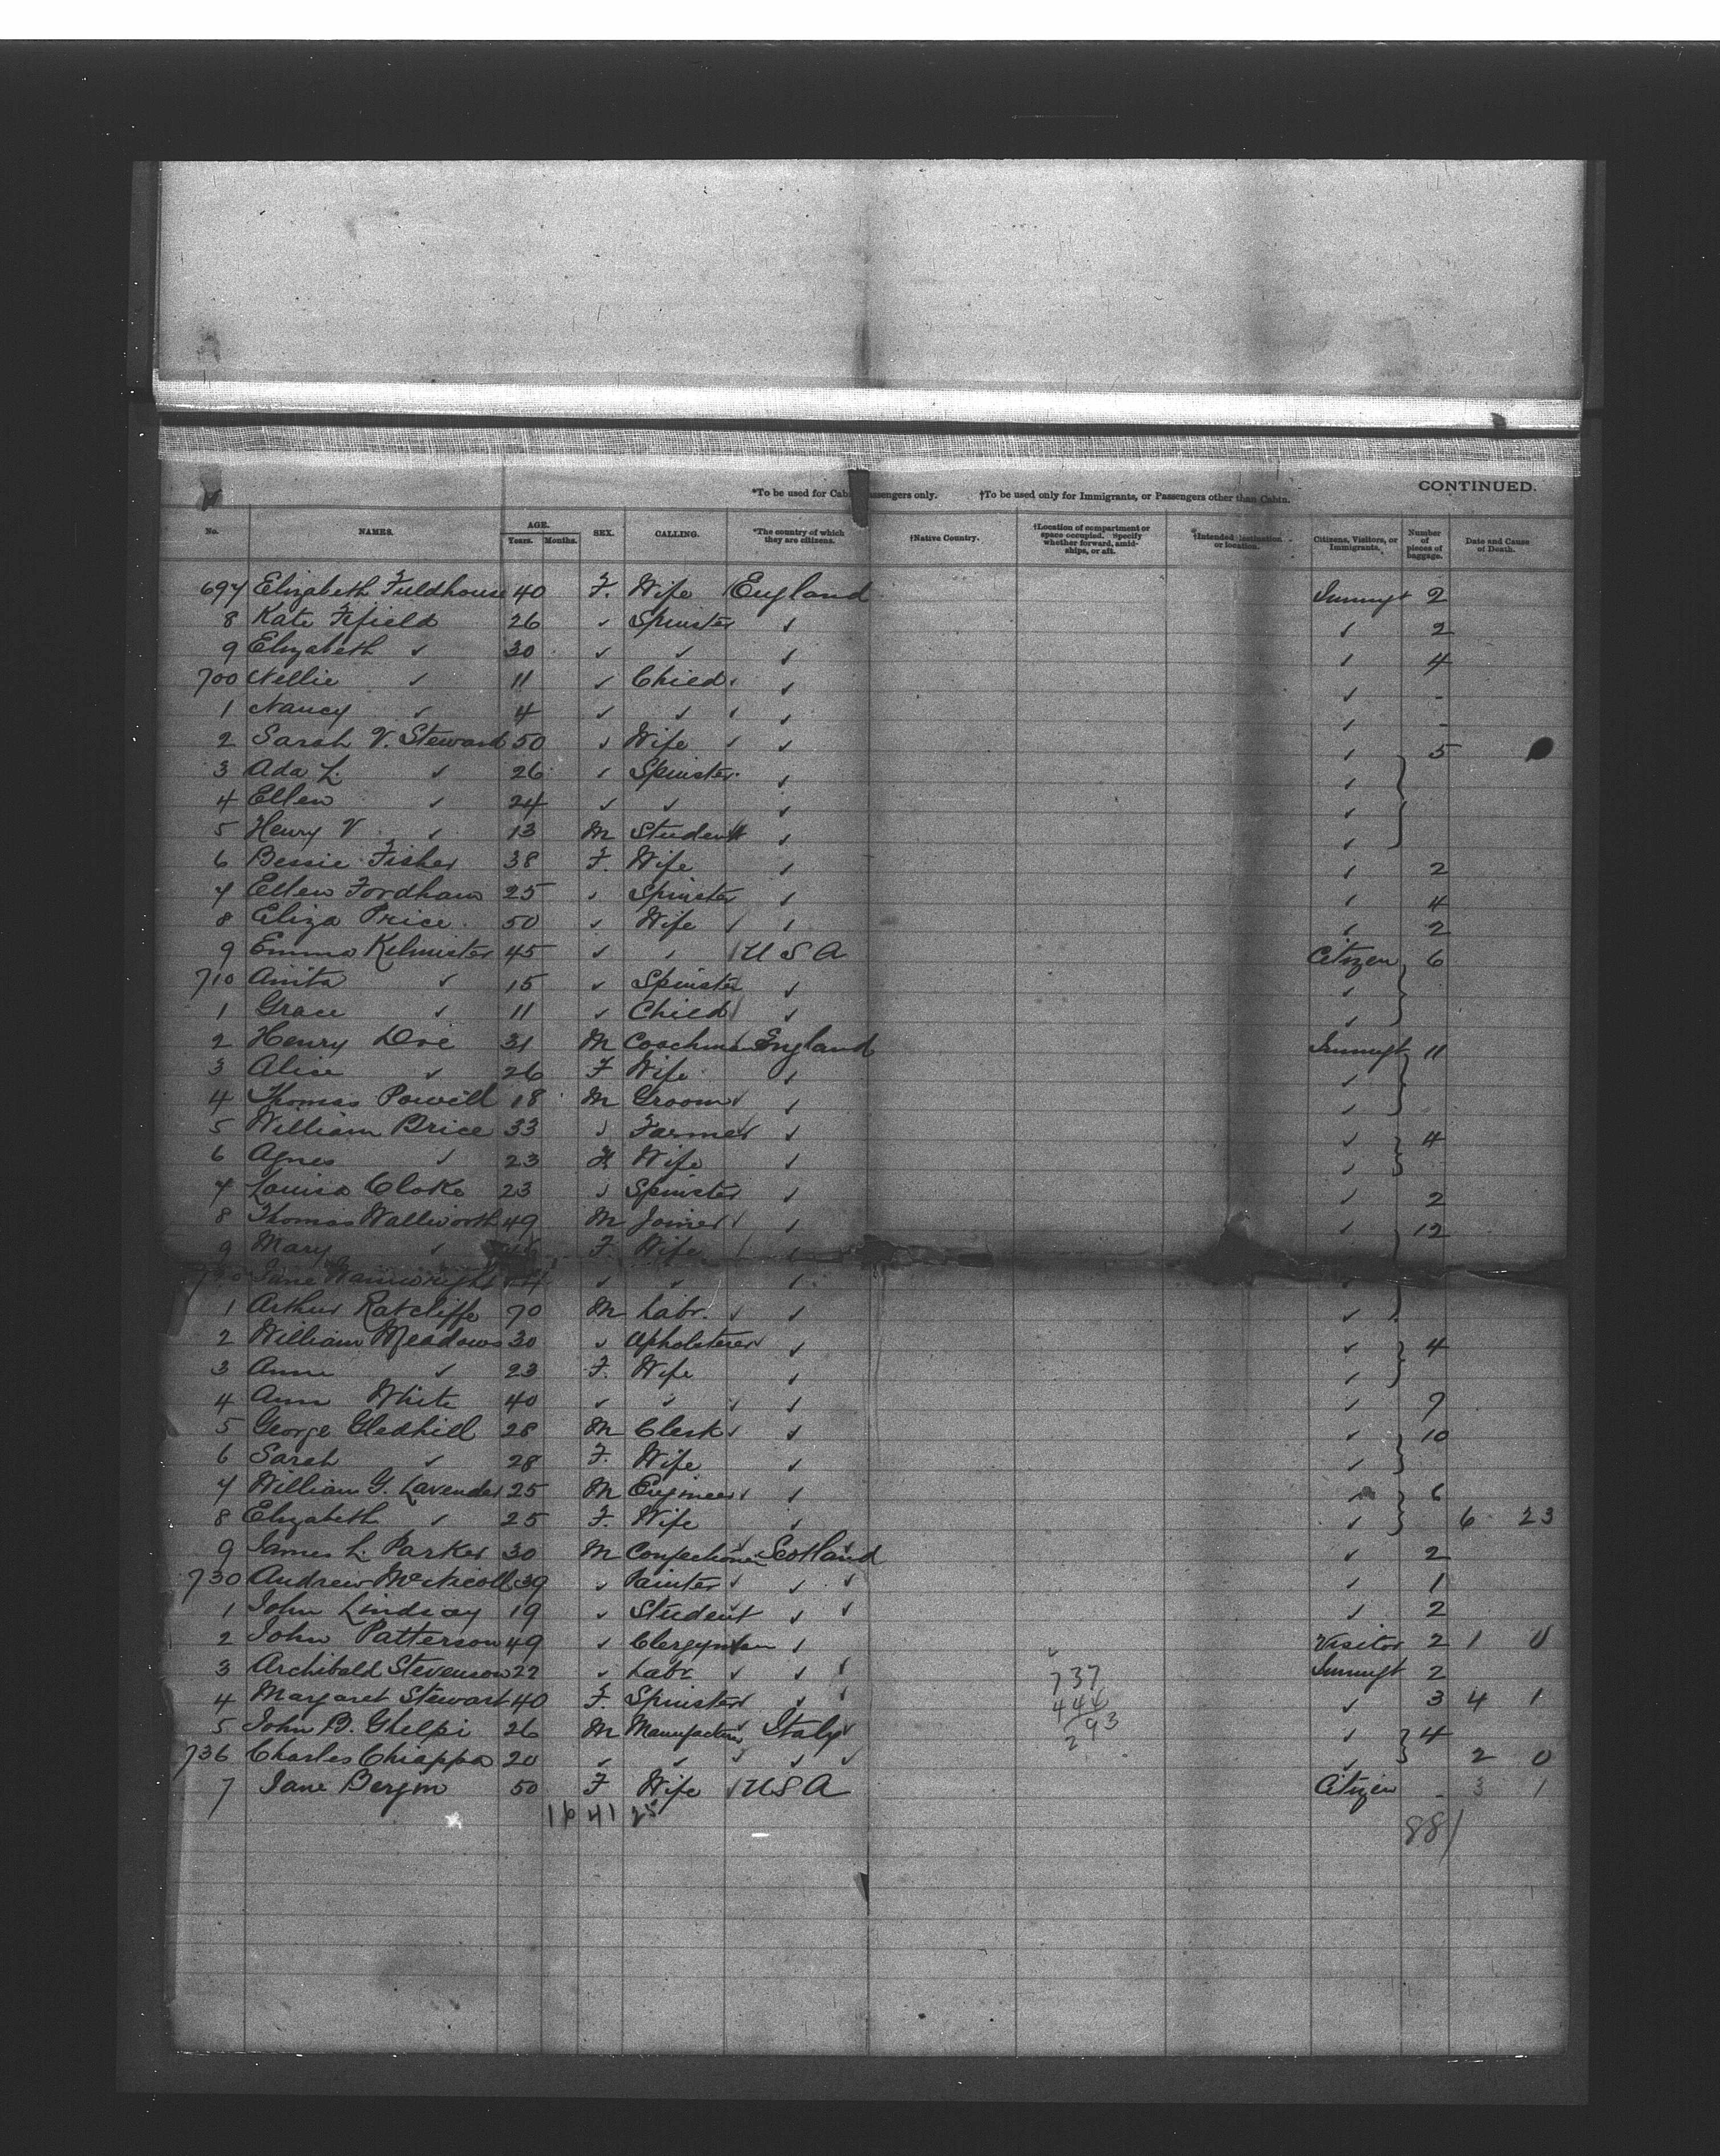 CONTINUED.
*To be used for Cabin Passengers only. †To be used only for Immigrants, or Passengers other than Cabin.
No. NAMES. AGE. Years. Months. SEX. CALLING. *The country of which they are citizens. †Native Country. †Location of compartment or space occupied. Specify whether forward, amidships, or aft. †Intended destination or location. Citizens, Visitors, or Immigrants. Number of pieces of baggage. Date and Cause of Death.
697 Elizabeth Fieldhouse 40 F. Wife England Immgt 2
8 Kate Fifield 26 ✓ Spinster ✓ ✓ 2
9 Elizabeth ✓ 30 ✓ ✓ ✓ ✓ 4
700 Nellie ✓ 11 ✓ Child ✓ ✓ -
1 Nancy ✓ 4 ✓ ✓ ✓ ✓ -
2 Sarah V. Steward 50 ✓ Wife ✓ ✓ 5
3 Ada L. ✓ 26 ✓ Spinster ✓ ✓
4 Ellen ✓ 24 ✓ ✓ ✓ ✓
5 Henry V ✓ 13 M Student ✓ ✓
6 Bessie Fisher 38 F. Wife ✓ ✓ 2
7 Ellen Fordham 25 ✓ Spinster ✓ ✓ 4
8 Eliza Price 50 ✓ Wife ✓ ✓ 2
9 Emma Kilminster 45 ✓ ✓ U S A Citizen 6
710 Anita ✓ 15 ✓ Spinster ✓ ✓
1 Grace ✓ 11 ✓ Child ✓ ✓
2 Henry Dve 31 M Coachman England Immgt 11
3 Alice ✓ 26 F Wife ✓ ✓
4 Thomas Powell 18 M Groom ✓ ✓
5 William Brice 33 ✓ Farmer ✓ ✓ 4
6 Agnes ✓ 23 F Wife ✓ ✓
7 Louisa Cloke 23 ✓ Spinster ✓ ✓ 2
8 Thomas Wallworth 49 M Joiner ✓ ✓ 12
9 Mary ✓ F. Wife ✓
Jane Wainwright ✓ ✓ ✓ ✓
1 Arthur Ratcliffe 70 M Labr. ✓ ✓
2 William Meadows 30 ✓ Upholsterer ✓ ✓ 4
3 Anne ✓ 23 F. Wife ✓ ✓
4 Ann White 40 ✓ ✓ ✓ ✓ 7
5 George Gledhill 28 M Clerk ✓ ✓ 10
6 Sarah ✓ 28 F. Wife ✓ ✓
7 William G. Lavender 25 M Engineer ✓ ✓ 6
8 Elizabeth ✓ 25 F. Wife ✓ ✓ 6 23
9 James L. Parker 30 M Confectioner Scotland ✓ 2
730 Andrew McNicoll 39 ✓ Painter ✓ ✓ 1
1 John Lindsay 19 ✓ Student ✓ ✓ 2
2 John Patterson 49 ✓ Clergyman ✓ Visitor 2 1 0
3 Archibald Stevenson 22 ✓ Labr ✓ 737 Immgt 2
4 Margaret Stewart 40 F. Spinster ✓ 444 ✓ 3 4 1
5 John B. Ghelpi 26 M Manufacturer Italy 293 ✓ 4
736 Charles Chiappa 20 ✓ ✓ ✓ ✓ 2 0
7 Jane Bergin 50 F Wife U S A Citizen - 3 1
16 41 25 881